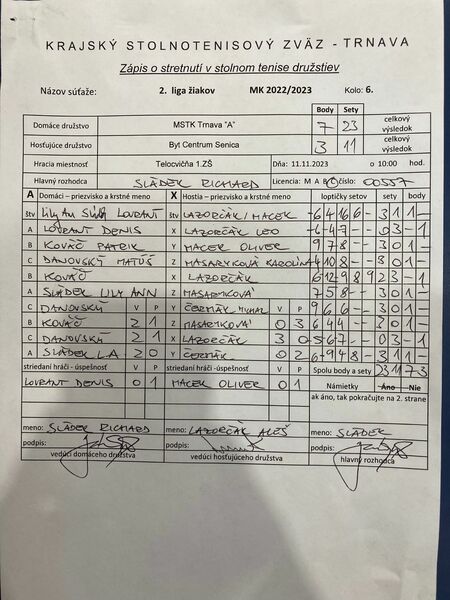 KRAJSKÝ STOLNOTENISOVÝ ZVÄZ - TRNAVA
Zápis o stretnutí v stolnom tenise družstiev
Názov súťaže: 2. liga žiakov MK 2022/2023 Kolo: 6.
Body Sety
Domáce družstvo MSTK Trnava "A" 7 23 celkový výsledok
Hosťujúce družstvo Byt Centrum Senica 3 11 celkový výsledok
Hracia miestnosť Telocvičňa 1.ZŠ Dňa: 11.11.2023 o 10:00 hod.
Hlavný rozhodca SLÁDEK RICHARD Licencia: M A B C číslo: 00557
A Domáci – priezvisko a krstné meno X Hostia – priezvisko a krstné meno loptičky setov sety body
štv LOVRANT štv LAZORČÁK / MACEK -6 4 16 6 - 3 1 1 -
A LOVRANT DENIS X LAZORČÁK LEO -6 -4 7 - - 0 3 - 1
B KOVÁČ PATRIK Y MACEK OLIVER 9 7 8 - - 3 0 1 -
C DANOVSKÝ MATÚŠ Z MASARYKOVÁ KAROLÍNA 4 10 8 - - 3 0 1 -
B KOVÁČ X LAZORČÁK 6 12 9 8 9 2 3 - 1
A SLÁDEK LILY ANN Z MASARYKOVÁ 7 5 8 - - 3 0 1 -
C DANOVSKÝ V P Y ČERMÁK MICHAL V P 9 6 6 - - 3 0 1 -
B KOVÁČ 2 1 Z MASARYKOVÁ 0 3 6 4 4 - - 3 0 1 -
C DANOVSKÝ 2 1 X LAZORČÁK 3 0 5 6 7 - - 0 3 - 1
A SLÁDEK L.A 2 0 Y ČERMÁK 0 2 6 -9 4 8 - 3 1 1 -
striedaní hráči - úspešnosť V P striedaní hráči - úspešnosť V P Spolu body a sety 23 11 7 3
LOVRANT DENIS 0 1 MACEK OLIVER 0 1 Námietky Áno – Nie
ak áno, tak pokračujte na 2. strane
meno: SLÁDEK RICHARD meno: LAZORČÁK ALEŠ meno: SLÁDEK
podpis: podpis: podpis:
vedúci domáceho družstva vedúci hosťujúceho družstva hlavný rozhodca